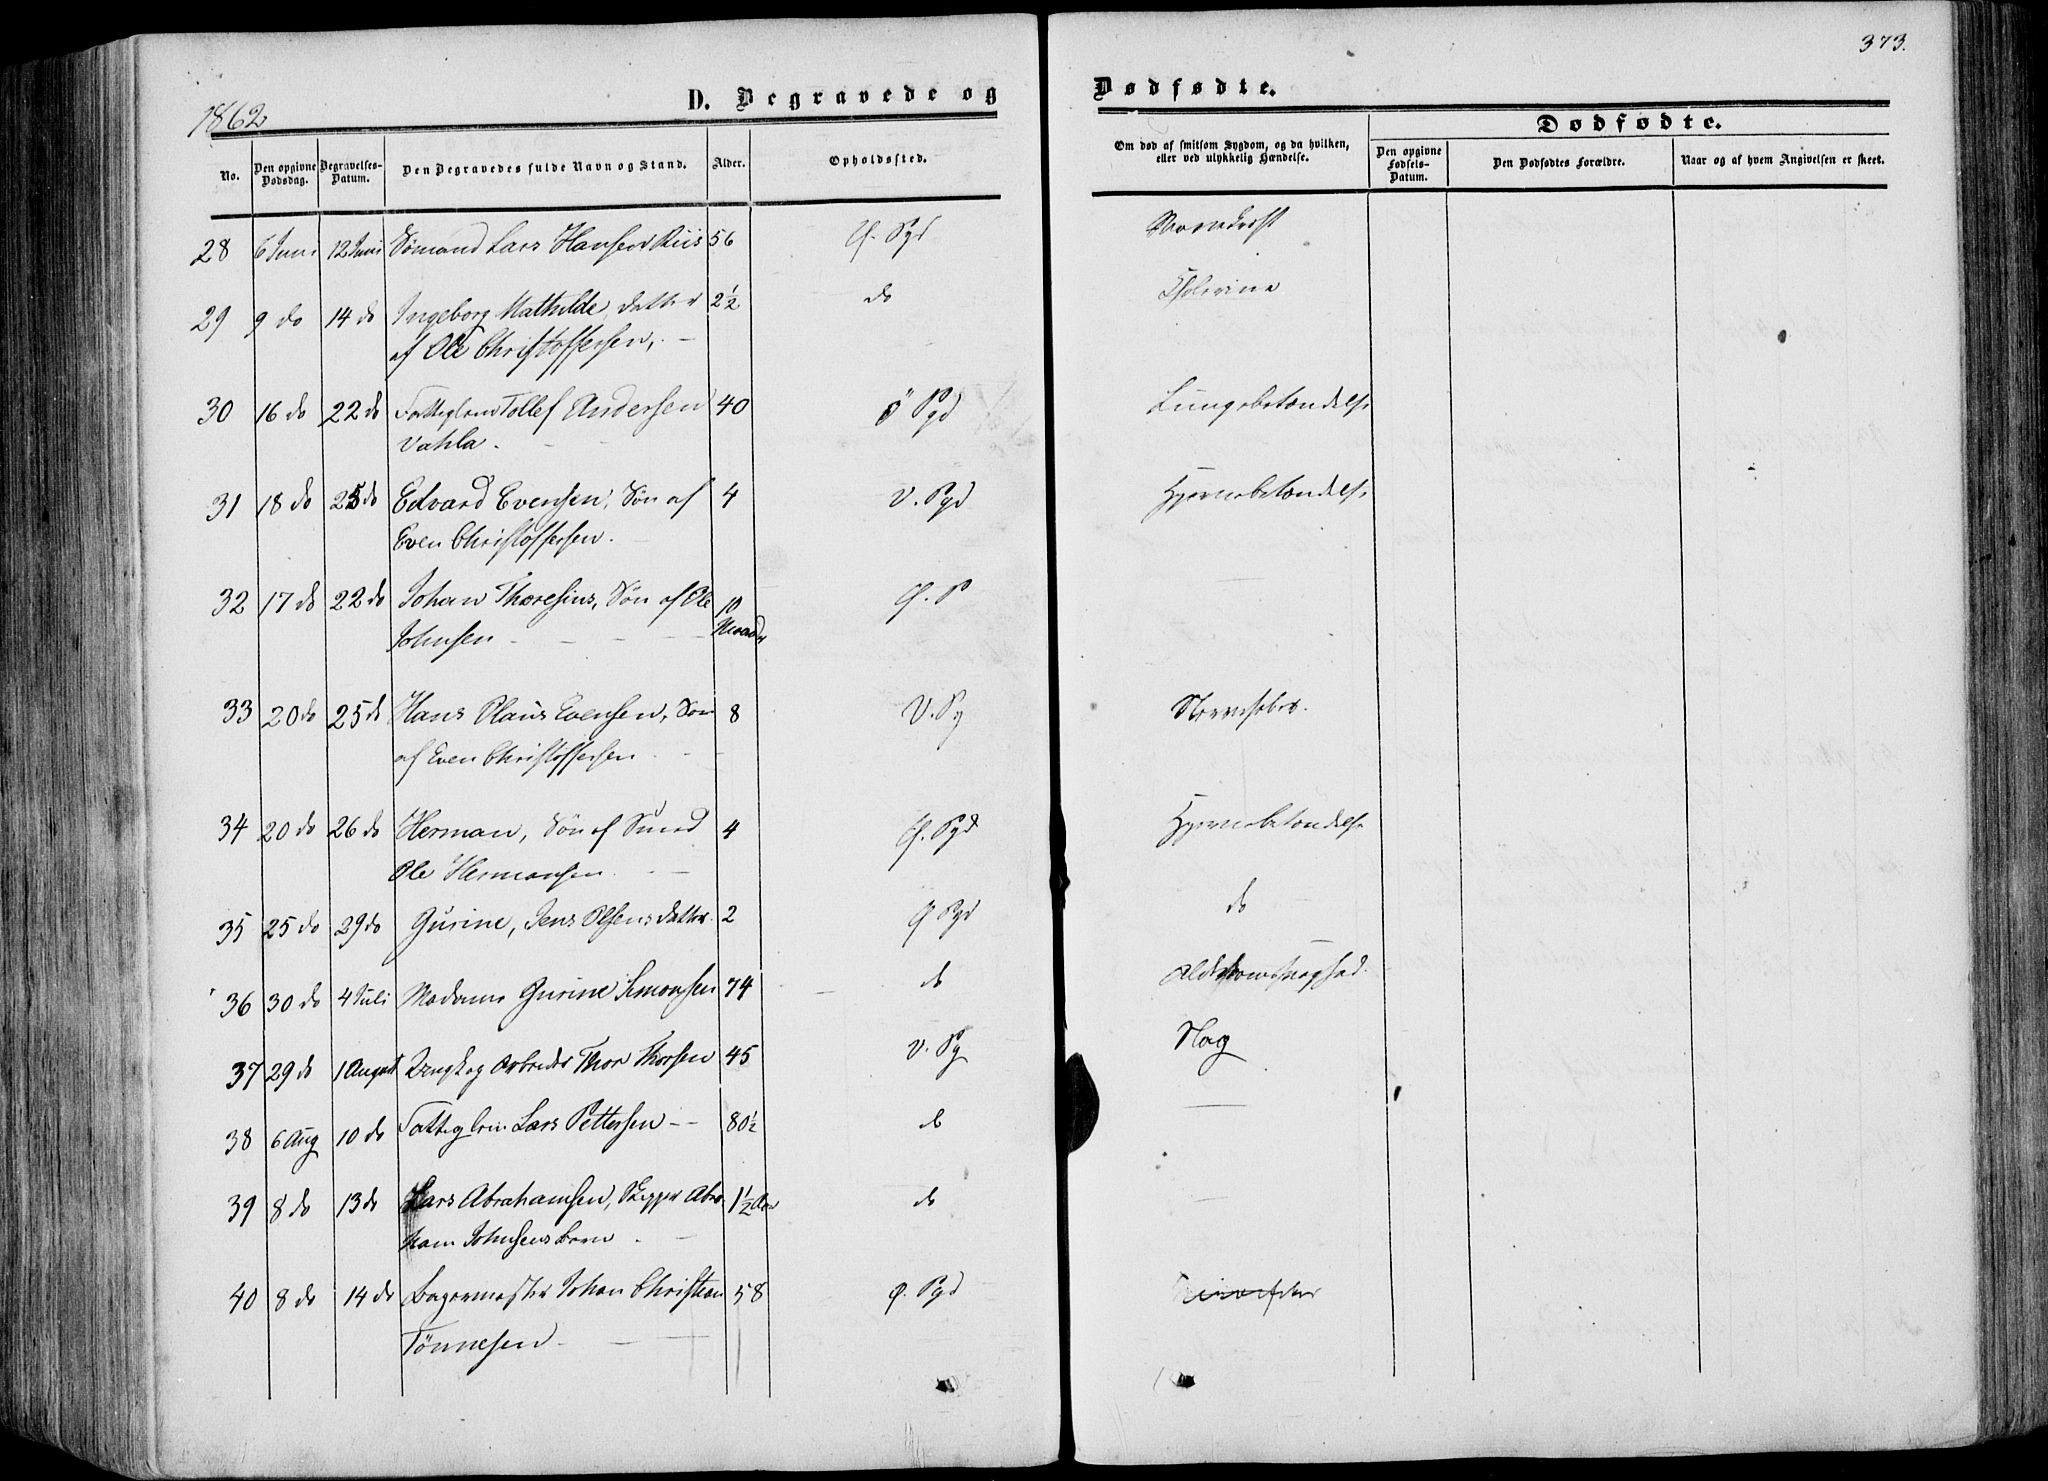 373.
1862
D. Begravede og
Dødfødte.
No.
Den opgivne Dødsdag.
Begravelses-Datum.
Den Begravedes fulde Navn og Stand.
Alder.
Opholdssted.
Om død af smitsom Sygdom, og da hvilken, eller ved ulykkelig Hændelse.
Dødfødte.
Den opgivne Fødsels-Datum.
Den Dødfødtes Forældre.
Naar og af hvem Angivelsen er skeet.
28 6 Juni 12 Juni Sømand Lars Hansen Riis 56 Pgd
29 9 do 14 do Ingeborg Mathilde, datter 2½ do Cholerine
af Ole Christoffersen,
30 16 do 22 do Fattiglem Tollef Andersen 40 Pgd Lungebetændelse
Vahla.
31 18 do 25 do Edvard Evensen, Søn af 4 V. Pgd Hjernebetændelse
Even Christoffersen.
32 17 do 22 do Johan Thoresius, Søn af Ole 10 P
Johnsen Maaneder
33 20 do 25 do Hans Claus Evensen, Søn 8 V. Pg Nervefeber.
af Even Christoffersen
34 20 do 26 do Herman, Søn af Smed 4 Pgd Hjernebetændelse
Ole Hermansen
35 25 do 29 do Gurine, Jens Olsens datter 2 Pgd do
36 30 do 4 Juli Madame Gurine Simonsen 74 do Alderdomssvaghed.
37 29 do 1 August arbeider Thor Thorsen 45 V. Pg Slag
38 6 Aug 10 do Fattiglem Lars Pettersen 80½ do
39 8 do 13 do Lars Abrahamsen, Skipper Abra- 1½ Aar do
ham Johnsens barn
40 8 do 14 do Bagermester Johan Christian 58 Pgd
Tønnesen